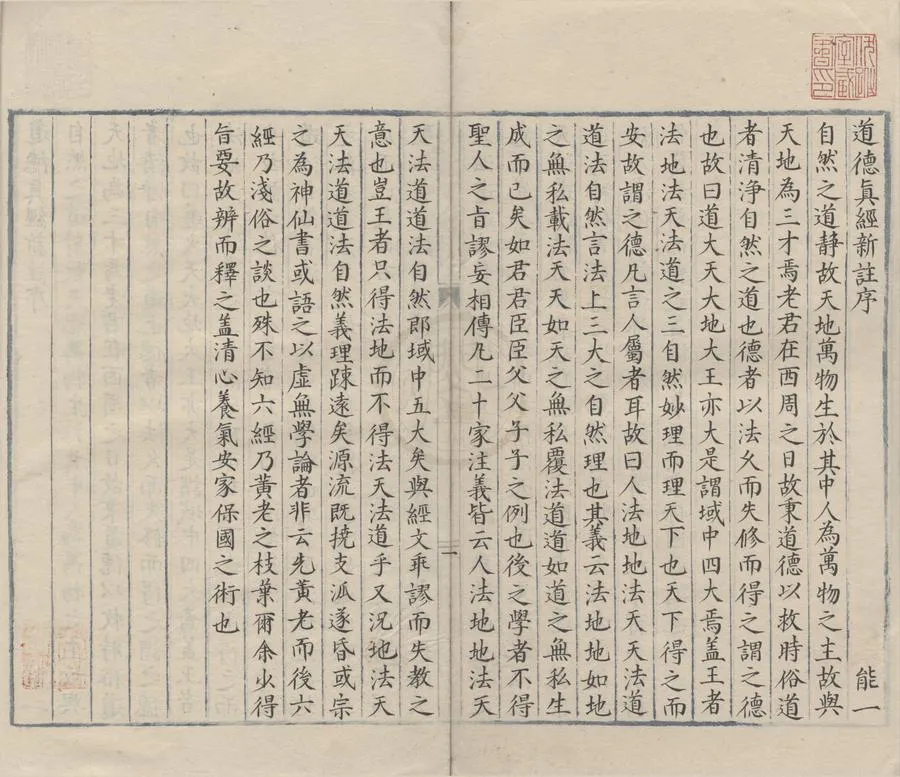 道德眞經新註序
能一
自然之道靜故天地萬物生於其中人為萬物之主故與
天地為三才焉老君在西周之日故秉道德以救時俗道
者清淨自然之道也德者以法久而失修而得之謂之德
也故曰道大天大地大王亦大是謂域中四大焉盖王者
法地法天法道之三自然妙理而理天下也天下得之而
安故謂之德凡言人屬者耳故曰人法地地法天天法道
道法自然言法上三大之自然理也其義云法地地如地
之無私載法天天如天之無私覆法道道如道之無私生
成而已矣如君君臣臣父父子子之例也後之學者不得
聖人之㫖謬妄相傳凢二十家注義皆云人法地地法天
天法道道法自然即域中五大矣與經文乖謬而失教之
意也豈王者只得法地而不得法天法道乎又況地法天
天法道道法自然義理踈遠矣源流既撓支泒遂昏或宗
之為神仙書或語之以虛無學論者非云先黃老而後六
經乃淺俗之談也殊不知六經乃黃老之枝葉爾余少得
㫖要故辨而釋之盖清心養氣安家保國之術也
一